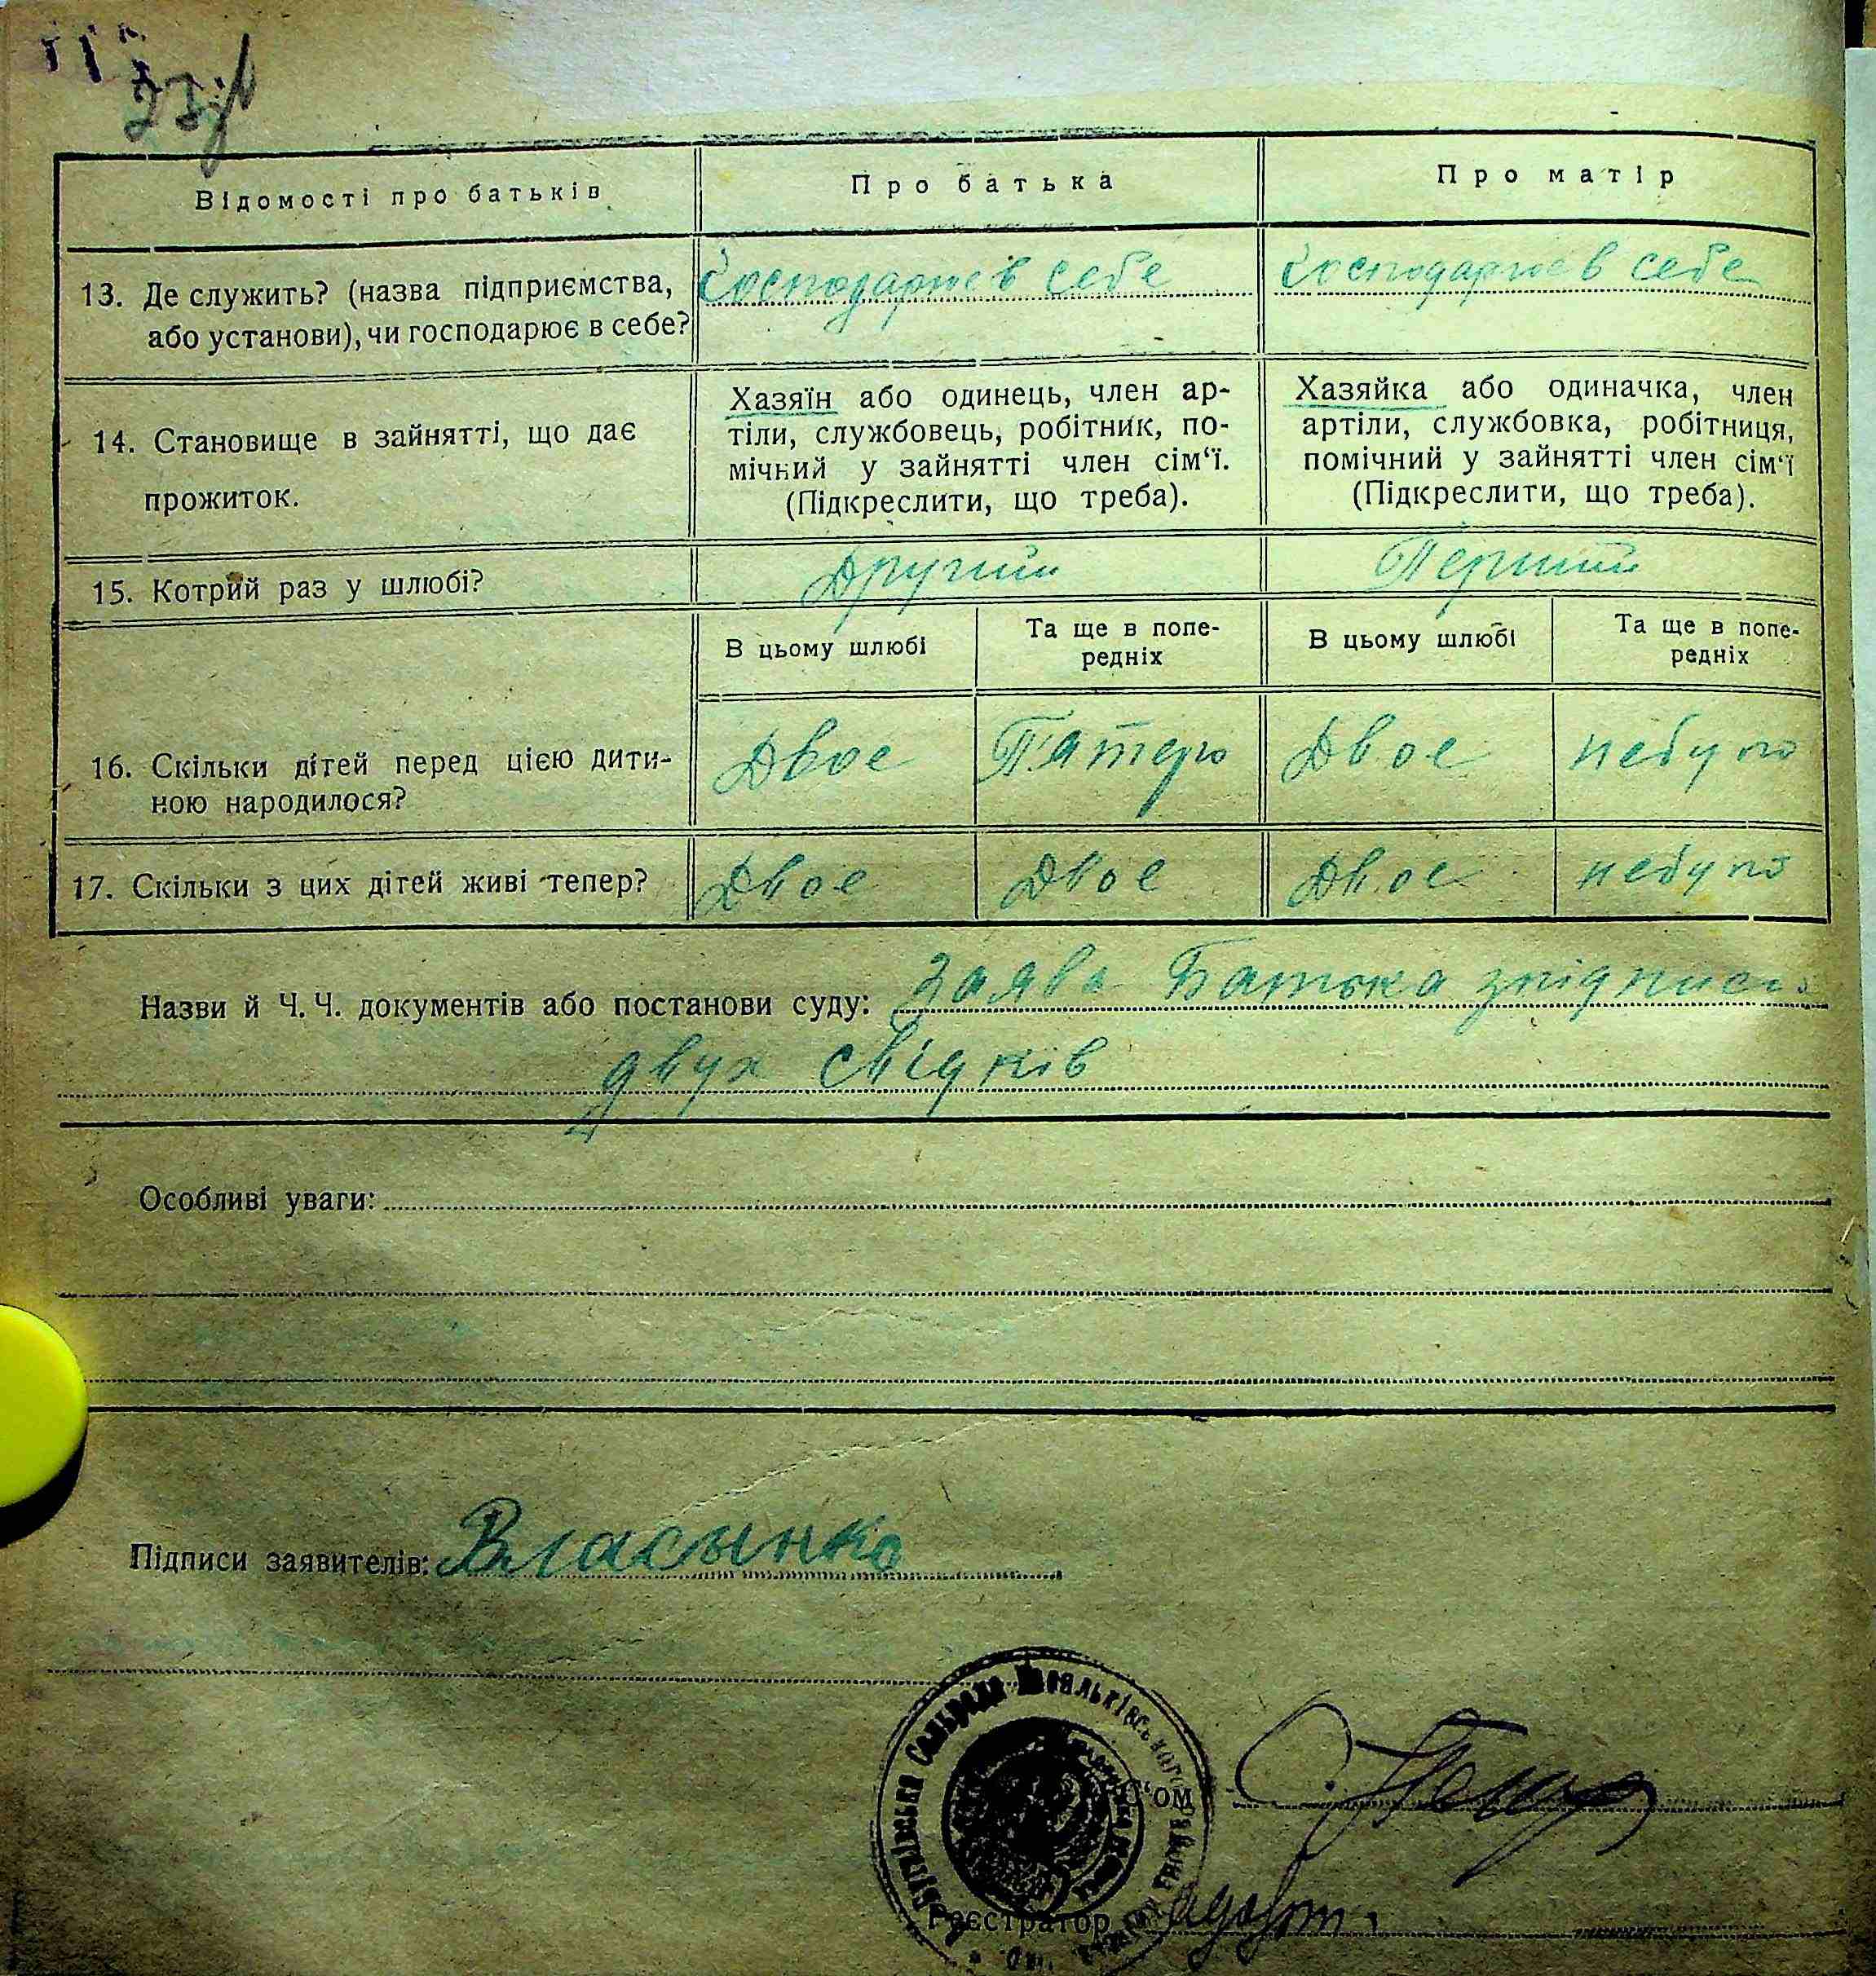 Відомості про батьків
Про батька
Про матір
13. Де служить? (назва підприємства,
або установи), чи господарює в себе?
Господарює в себе
Господарює в себе
14. Становище в зайнятті, що дає
прожиток.
Хазяїн або одинець, член ар-
тіли, службовець, робітник, по-
мічний у зайнятті член сім‘ї.
(Підкреслити, що треба).
Хазяйка або одиначка, член
артіли, службовка, робітниця,
помічний у зайнятті член сім‘ї
(Підкреслити, що треба).
15. Котрий раз у шлюбі?
Другий
Перший
В цьому шлюбі
Та ще в попе-
редніх
В цьому шлюбі
Та ще в попе-
редніх
16. Скільки дітей перед цією дити-
ною народилося?
Двоє
Пятеро
Двоє
небуло
17. Скільки з цих дітей живі тепер?
Двоє
Двоє
Двоє
небуло
Назви й Ч. Ч. документів або постанови суду: Заява Батька
двух свідків
Особливі уваги:
Підписи заявителів: Власынко
Сельрада
Реєстратор